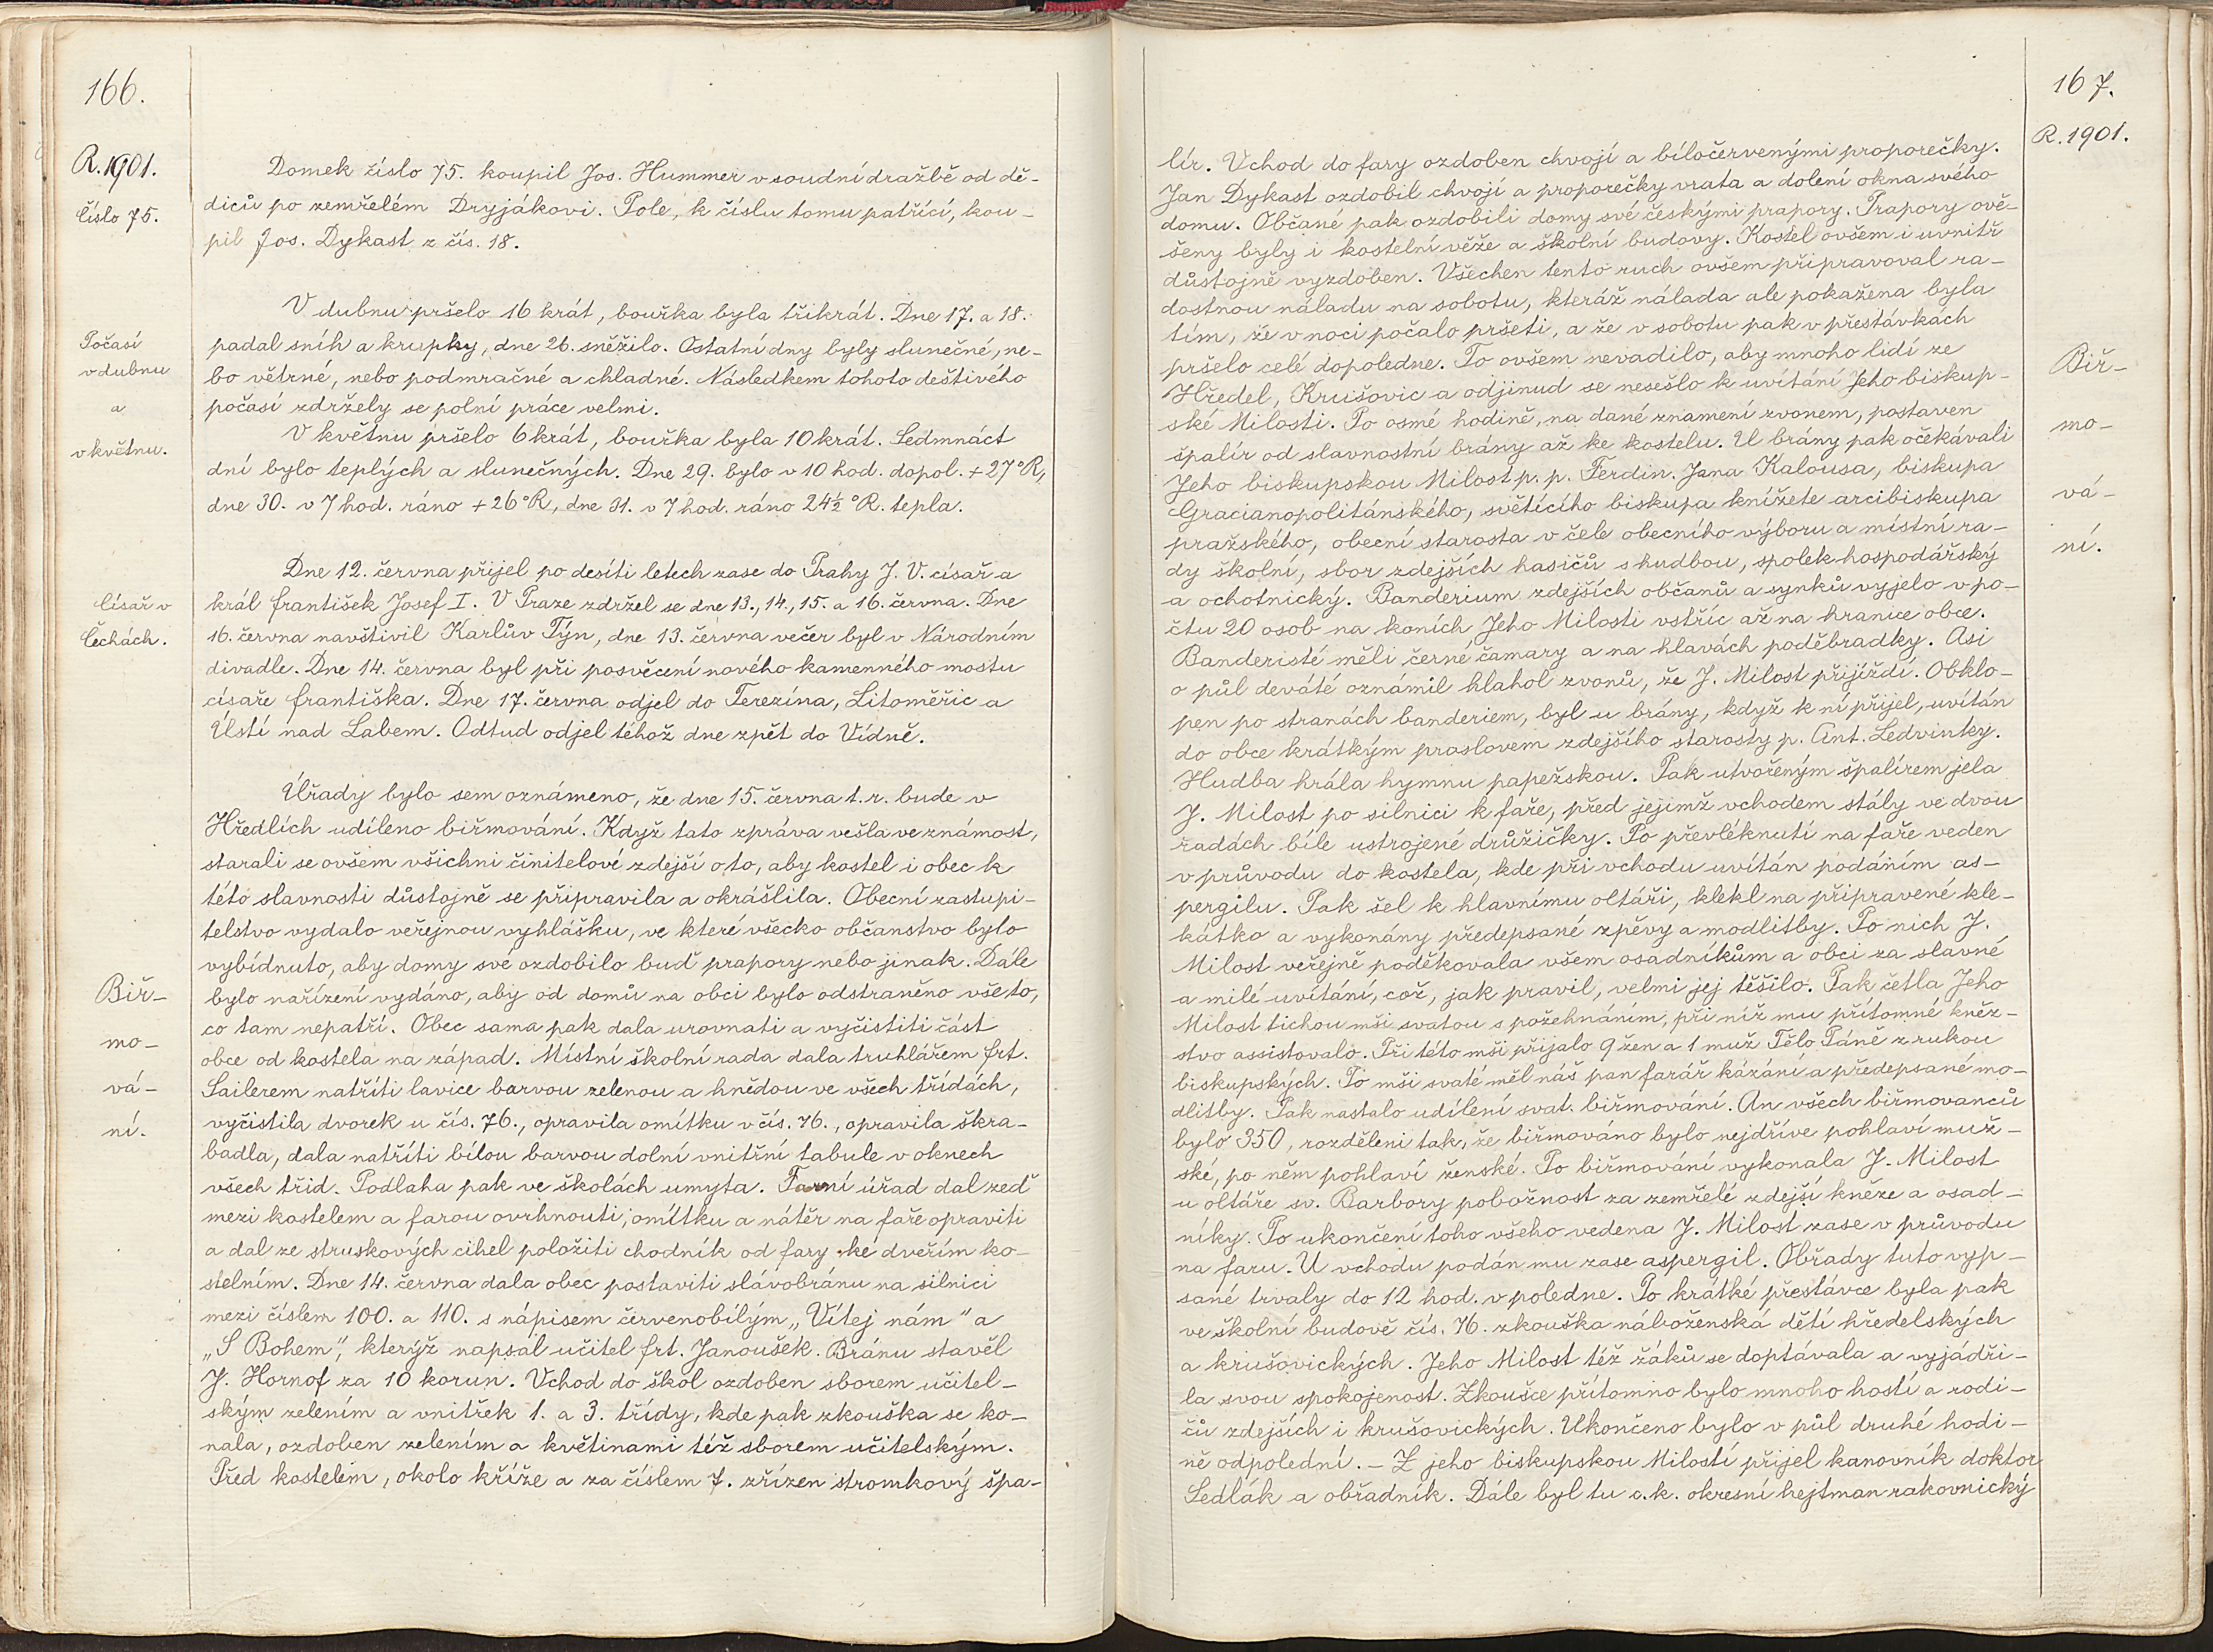 166.
R. 1901.
Číslo 75.
Domek číslo 75. koupil Jos. Hummer v soudní dražbě od dě-
diců po zemřelém Dryjákovi. Pole, k číslu tomu patřící, kou-
pil Jos. Dykast z čís. 18.
Počasí
v dubnu
a
v květnu.
V dubnu pršelo 16 krát, bouřka byla třikrát. Dne 17. a 18.
padal sníh a krupky, dne 26. sněžilo. Ostatní dny byly slunečné, ne-
bo větrné, nebo podmračné a chladné. Následkem tohoto deštivého
počasí zdržely se polní práce velmi.
V květnu pršelo 6 krát, bouřka byla 10 krát. Sedmnáct
dní bylo teplých a slunečných. Dne 29. bylo v 10 hod. dopol. + 27°R,
dne 30. v 7 hod. ráno + 26°R, dne 31. v 7 hod. ráno 24½ °R. tepla.
Císař v
Čechách.
Dne 12. června přijel po desíti letech zase do Prahy J. V. císař a
král František Josef I. V Praze zdržel se dne 13., 14., 15. a 16. června. Dne
16. června navštivil Karlův Týn, dne 13. června večer byl v Národním
divadle. Dne 14. června byl při posvěcení nového kamenného mostu
císaře Františka. Dne 17. června odjel do Terezína, Litoměřic a
Ústí nad Labem. Odtud odjel téhož dne zpět do Vídně.
Biř-
mo-
vá-
ní.
Úřady bylo sem oznámeno, že dne 15. června t. r. bude v
Hředlích udíleno biřmování. Když tato zpráva vešla ve známost,
starali se ovšem všichni činitelové zdejší o to, aby kostel i obec k
této slavnosti důstojně se připravila a okrášlila. Obecní zastupi-
telstvo vydalo veřejnou vyhlášku, ve které všecko občanstvo bylo
vybídnuto, aby domy své ozdobilo buď prapory nebo jinak. Dále
bylo nařízení vydáno, aby od domů na obci bylo odstraněno vše to,
co tam nepatří. Obec sama pak dala urovnati a vyčistiti část
obce od kostela na západ. Místní školní rada dala truhlářem Frt.
Sailerem natříti lavice barvou zelenou a hnědou ve všech třídách,
vyčistila dvorek u čís. 76., opravila omítku v čís. 76., opravila škra-
badla, dala natříti bílou barvou dolní vnitřní tabule v oknech
všech tříd. Podlaha pak ve školách umyta. Farní úřad dal zeď
mezi kostelem a farou ovrhnouti, omítku a nátěr na faře opraviti
a dal ze struskových cihel položiti chodník od fary ke dveřím ko-
stelním. Dne 14. června dala obec postaviti slávobránu na silnici
mezi číslem 100. a 110. s nápisem červenobílým „Vítej nám" a
„S Bohem", kterýž napsal učitel Frt. Janoušek. Bránu stavěl
J. Hornof za 10 korun. Vchod do škol ozdoben sborem učitel-
ským zelením a vnitřek 1. a 3. třídy, kde pak zkouška se ko-
nala, ozdoben zelením a květinami též sborem učitelským.
Před kostelem, okolo kříže a za číslem 7. zřízen stromkový špa-
167.
R. 1901.
Biř-
mo-
vá-
ní.
lír. Vchod do fary ozdoben chvojí a bíločervenými proporečky.
Jan Dykast ozdobil chvojí a proporečky vrata a dolení okna svého
domu. Občané pak ozdobili domy své českými prapory. Prapory ově-
šeny byly i kostelní věže a školní budovy. Kostel ovšem i uvnitř
důstojně vyzdoben. Všechen tento ruch ovšem připravoval ra-
dostnou náladu na sobotu, kteráž nálada ale pokažena byla
tím, že v noci počalo pršeti, a že v sobotu pak v přestávkách
pršelo celé dopoledne. To ovšem nevadilo, aby mnoho lidí ze
Hředel, Krušovic a odjinud se nesešlo k uvítání Jeho biskup-
ské Milosti. Po osmé hodině, na dané znamení zvonem, postaven
špalír od slavnostní brány až ke kostelu. U brány pak očekávali
Jeho biskupskou Milost p. p. Ferdin. Jana Kalousa, biskupa
Gracianopolitánského, světícího biskupa knížete arcibiskupa
pražského, obecní starosta v čele obecního výboru a místní ra-
dy školní, sbor zdejších hasičů s hudbou, spolek hospodářský
a ochotnický. Banderium zdejších občanů a synků vyjelo v po-
čtu 20 osob na koních Jeho Milosti vstříc až na hranice obce.
Banderisté měli černé čamary a na hlavách poděbradky. Asi
o půl deváté oznámil hlahol zvonů, že J. Milost přijíždí. Obklo-
pen po stranách banderiem, byl u brány, když k ní přijel, uvítán
do obce krátkým proslovem zdejšího starosty p. Ant. Ledvinky.
Hudba hrála hymnu papežskou. Pak utvořeným špalírem jela
J. Milost po silnici k faře, před jejímž vchodem stály ve dvou
řadách bíle ustrojené drůžičky. Po převléknutí na faře veden
v průvodu do kostela, kde při vchodu uvítán podáním as-
pergilu. Pak šel k hlavnímu oltáři, klekl na připravené kle-
kátko a vykonány předepsané zpěvy a modlitby. Po nich J.
Milost veřejně poděkovala všem osadníkům a obci za slavné
a milé uvítání, což, jak pravil, velmi jej těšilo. Pak četla Jeho
Milost tichou mši svatou s požehnáním, při níž mu přítomné kněz-
stvo assistovalo. Při této mši přijalo 9 žen a 1 muž Tělo Páně z rukou
biskupských. Po mši svaté měl náš pan farář kázání a předepsané mo-
dlitby. Pak nastalo udílení svat. biřmování. An všech biřmovanců
bylo 350, rozděleni tak, že biřmováno bylo nejdříve pohlaví muž-
ské, po něm pohlaví ženské. Po biřmování vykonala J. Milost
u oltáře sv. Barbory pobožnost za zemřelé zdejší kněze a osad-
níky. Po ukončení toho všeho vedena J. Milost zase v průvodu
na faru. U vchodu podán mu zase aspergil. Obřady tuto vyp-
sané trvaly do 12 hod. v poledne. Po krátké přestávce byla pak
ve školní budově čís. 76. zkouška náboženská dětí hředelských
a krušovických. Jeho Milost též žáků se doptávala a vyjádři-
la svou spokojenost. Zkoušce přítomno bylo mnoho hostí a rodi-
čů zdejších i krušovických. Ukončeno bylo v půl druhé hodi-
ně odpolední. – Z jeho biskupskou Milostí přijel kanovník doktor
Sedlák a obřadník. Dále byl tu c. k. okresní hejtman rakovnický